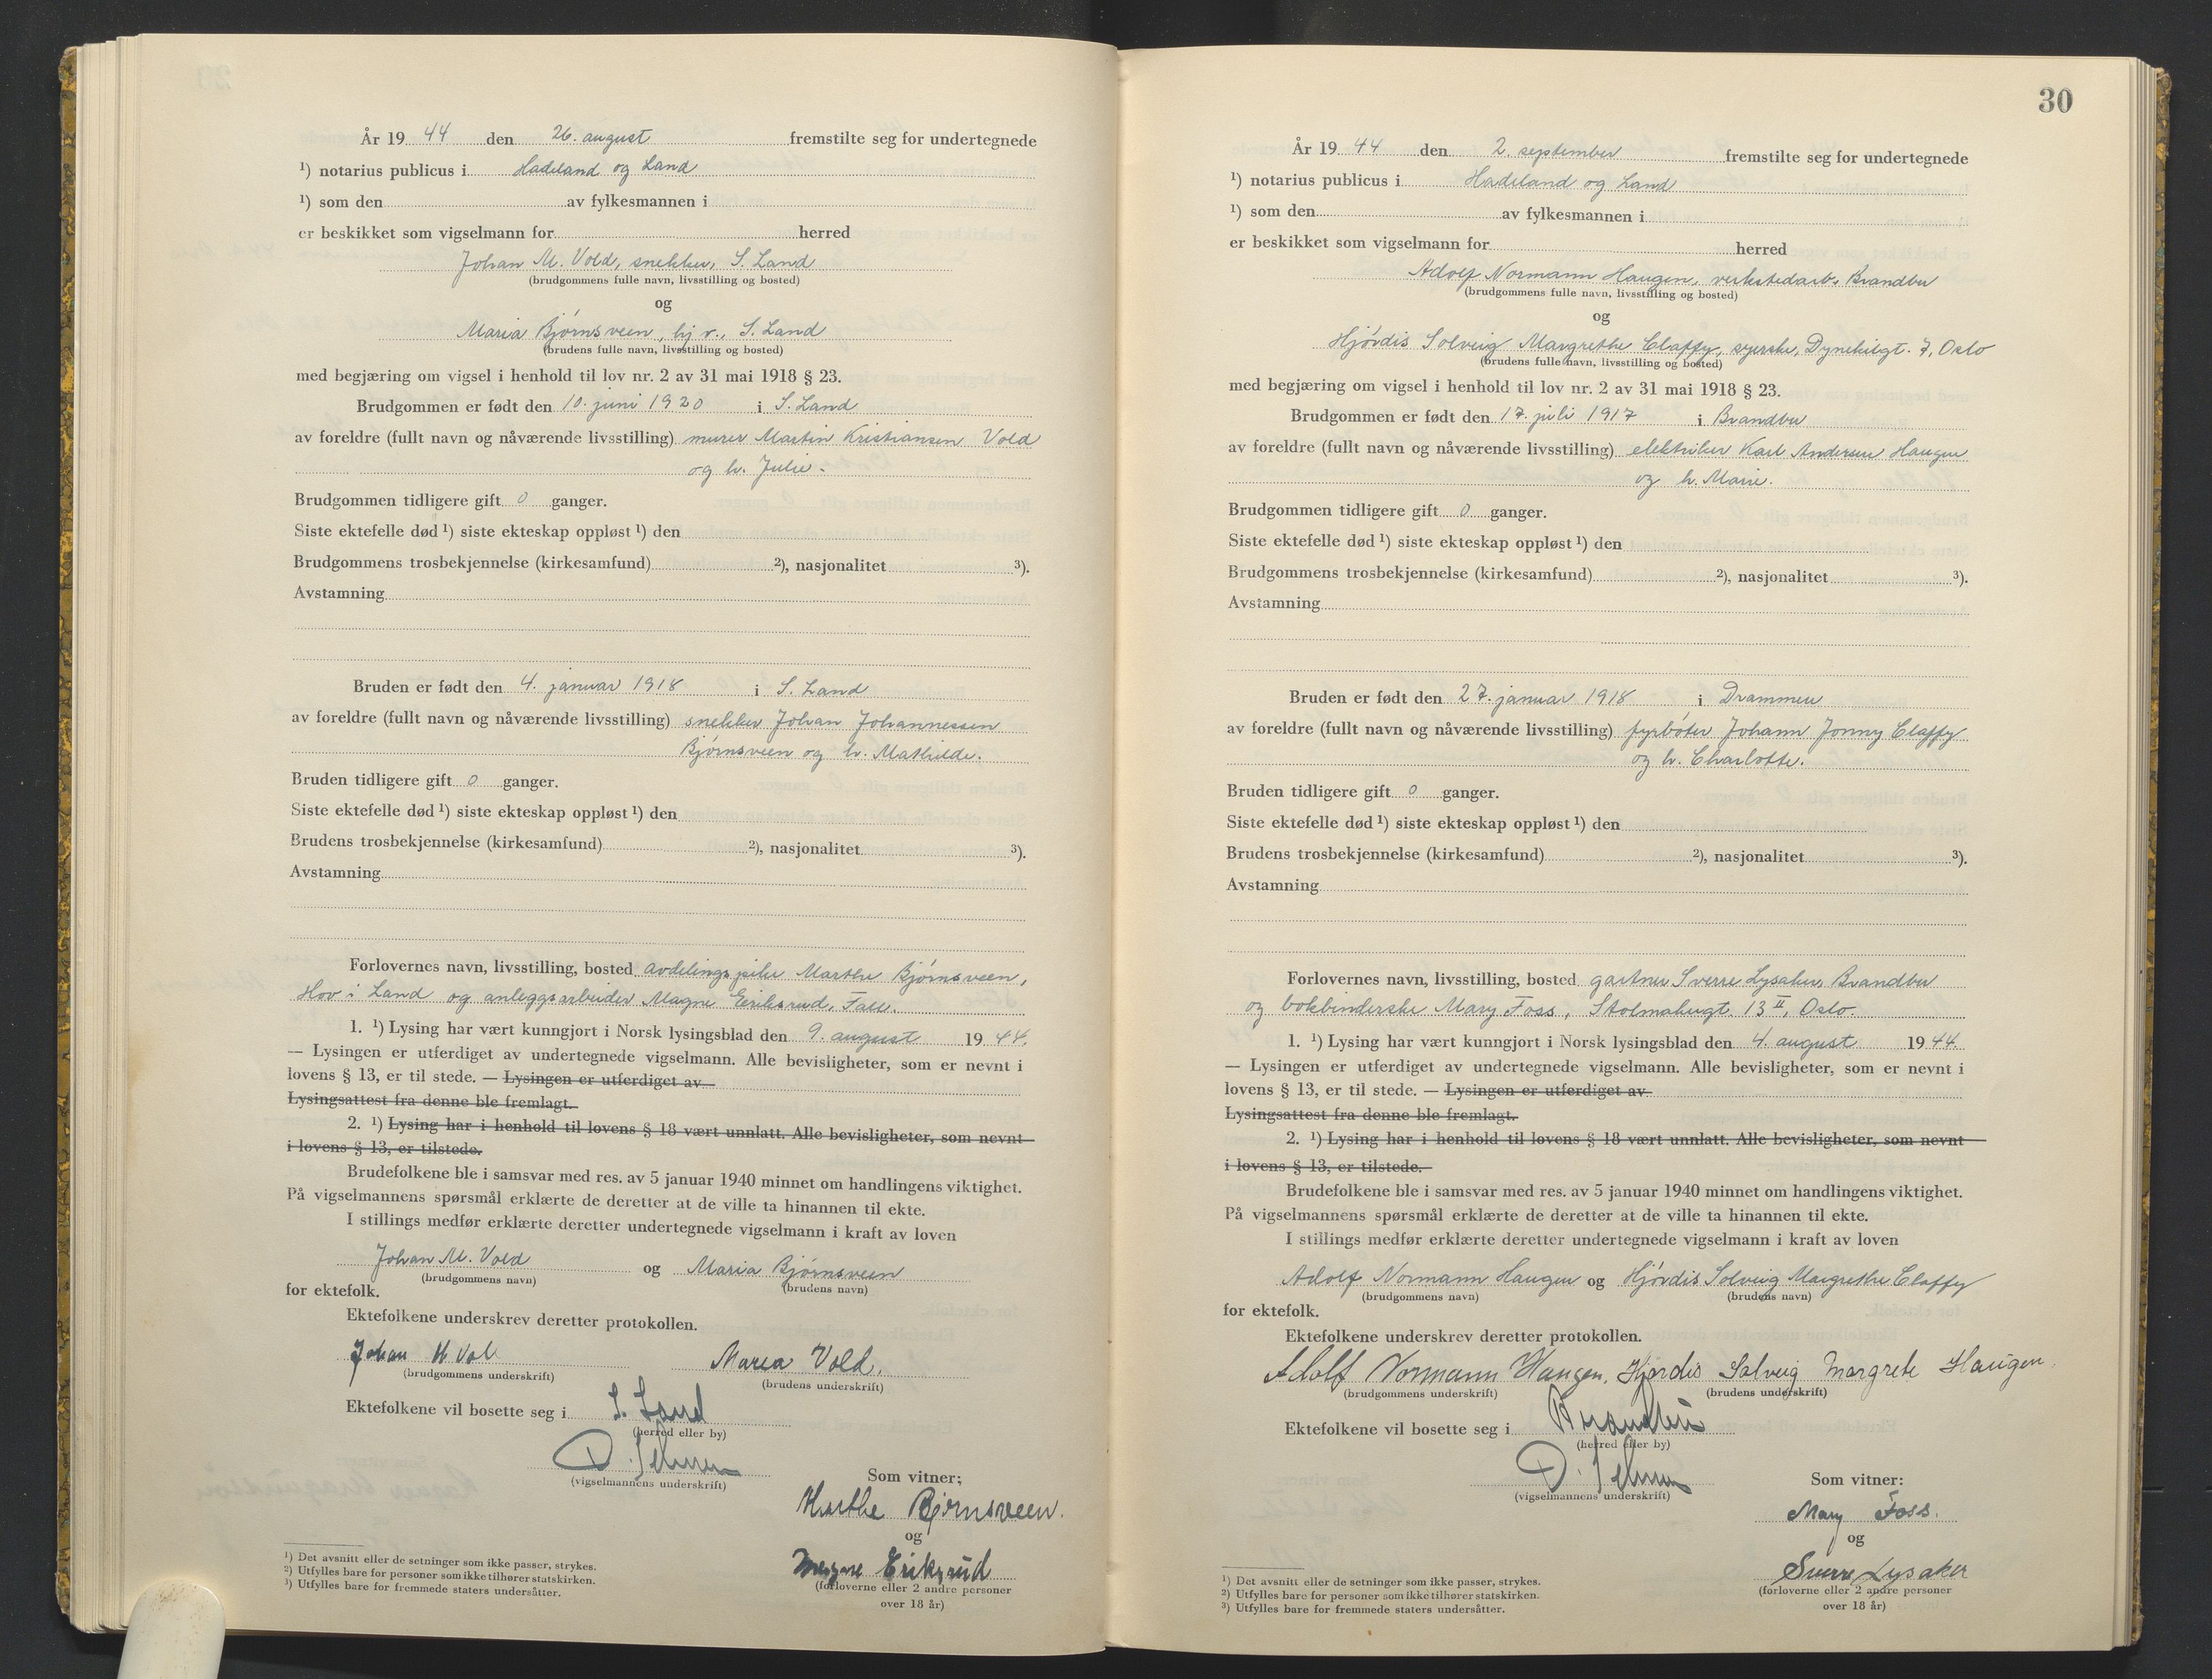 År 19 44 den 26. august fremstilte seg for undertegnede
¹) notarius publicus i Hadeland og Land
¹) som den av fylkesmannen i
er beskikket som vigselmann for herred
Johan M. Vold, snekker, S. Land
(brudgommens fulle navn, livsstilling og bosted)
og
Maria Bjørnsveen, hj v., S. Land
(brudens fulle navn, livsstilling og bosted)
med begjæring om vigsel i henhold til lov nr. 2 av 31 mai 1918 § 23.
Brudgommen er født den 10. juni 1920 i S. Land
av foreldre (fullt navn og nåværende livsstilling) murer Martin Kristiansen Vold
og h. Julie.
Brudgommen tidligere gift 0 ganger.
Siste ektefelle død ¹) siste ekteskap oppløst ¹) den
Brudgommens trosbekjennelse (kirkesamfund) ²), nasjonalitet ³).
Avstamning
Bruden er født den 4. januar 1918 i S. Land
av foreldre (fullt navn og nåværende livsstilling) snekker Johan Johannessen
Bjørnsveen og h. Mathilde.
Bruden tidligere gift 0 ganger.
Siste ektefelle død ¹) siste ekteskap oppløst ¹) den
Brudens trosbekjennelse (kirkesamfund) ²), nasjonalitet ³).
Avstamning
Forlovernes navn, livsstilling, bosted Marthe Bjørnsveen,
Hov i Land og anleggsarbeider Magne Eriksrud, Fall.
1. ¹) Lysing har vært kunngjort i Norsk lysingsblad den 9. august 19 44.
— Lysingen er utferdiget av undertegnede vigselmann. Alle bevisligheter, som er nevnt i
lovens § 13, er til stede. — Lysingen er utferdiget av
Lysingsattest fra denne ble fremlagt.
2. ¹) Lysing har i henhold til lovens § 18 vært unnlatt. Alle bevisligheter, som nevnt
i lovens § 13, er tilstede.
Brudefolkene ble i samsvar med res. av 5 januar 1940 minnet om handlingens viktighet.
På vigselmannens spørsmål erklærte de deretter at de ville ta hinannen til ekte.
I stillings medfør erklærte deretter undertegnede vigselmann i kraft av loven
Johan M. Vold og Maria Bjørnsveen
(brudgommens navn) (brudens navn)
for ektefolk.
Ektefolkene underskrev deretter protokollen.
Johan M Vol Maria Vold.
(brudgommens underskrift) (brudens underskrift)
Ektefolkene vil bosette seg i S. Land
(herred eller by)
(vigselmannens underskrift)
Som vitner;
Marthe Bjørnsveen.
og
Magne Eriksrud
(forloverne eller 2 andre personer
over 18 år)
¹) Det avsnitt eller de setninger som ikke passer, strykes.
²) Utfylles bare for personer som ikke tilhører statskirken.
³) Utfylles bare for fremmede staters undersåtter.
30
År 19 44 den 2. september fremstilte seg for undertegnede
¹) notarius publicus i Hadeland og Land
¹) som den av fylkesmannen i
er beskikket som vigselmann for herred
Adolf Normann Haugen, verkstedarb. Brandbu
(brudgommens fulle navn, livsstilling og bosted)
og
Hjørdis Solveig Margrethe Claffy, syerske, Dynekilgt. 7, Oslo
(brudens fulle navn, livsstilling og bosted)
med begjæring om vigsel i henhold til lov nr. 2 av 31 mai 1918 § 23.
Brudgommen er født den 17. juli 1917 i Brandbu
av foreldre (fullt navn og nåværende livsstilling) elektriker Karl Andersen Haugen
og h. Marie.
Brudgommen tidligere gift 0 ganger.
Siste ektefelle død ¹) siste ekteskap oppløst ¹) den
Brudgommens trosbekjennelse (kirkesamfund) ²), nasjonalitet ³).
Avstamning
Bruden er født den 27. januar 1918 i Drammen
av foreldre (fullt navn og nåværende livsstilling) fyrbøter Johann Jonny Claffy
og h. Charlotte.
Bruden tidligere gift 0 ganger.
Siste ektefelle død ¹) siste ekteskap oppløst ¹) den
Brudens trosbekjennelse (kirkesamfund) ²), nasjonalitet ³).
Avstamning
Forlovernes navn, livsstilling, bosted gartner Sverre Lysaker, Brandbu
og bokbinderske Mary Foss, Stolmakergt. 13 II, Oslo.
1. ¹) Lysing har vært kunngjort i Norsk lysingsblad den 4. august 19 44.
— Lysingen er utferdiget av undertegnede vigselmann. Alle bevisligheter, som er nevnt i
lovens § 13, er til stede. — Lysingen er utferdiget av
Lysingsattest fra denne ble fremlagt.
2. ¹) Lysing har i henhold til lovens § 18 vært unnlatt. Alle bevisligheter, som nevnt
i lovens § 13, er tilstede.
Brudefolkene ble i samsvar med res. av 5 januar 1940 minnet om handlingens viktighet.
På vigselmannens spørsmål erklærte de deretter at de ville ta hinannen til ekte.
I stillings medfør erklærte deretter undertegnede vigselmann i kraft av loven
Adolf Normann Haugen og Hjørdis Solveig Margrethe Claffy
(brudgommens navn) (brudens navn)
for ektefolk.
Ektefolkene underskrev deretter protokollen.
Adolf Normann Haugen, Hjørdis Solveig Margrete Haugen.
(brudgommens underskrift) (brudens underskrift)
Ektefolkene vil bosette seg i Brandbu
(herred eller by)
(vigselmannens underskrift)
Som vitner:
Mary Foss.
og
Sverre Lysaker
(forloverne eller 2 andre personer
over 18 år)
¹) Det avsnitt eller de setninger som ikke passer, strykes.
²) Utfylles bare for personer som ikke tilhører statskirken.
³) Utfylles bare for fremmede staters undersåtter.